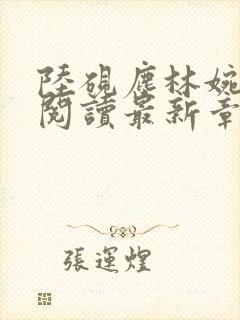 陸硯塵林婉
閱讀最新章
張運煌